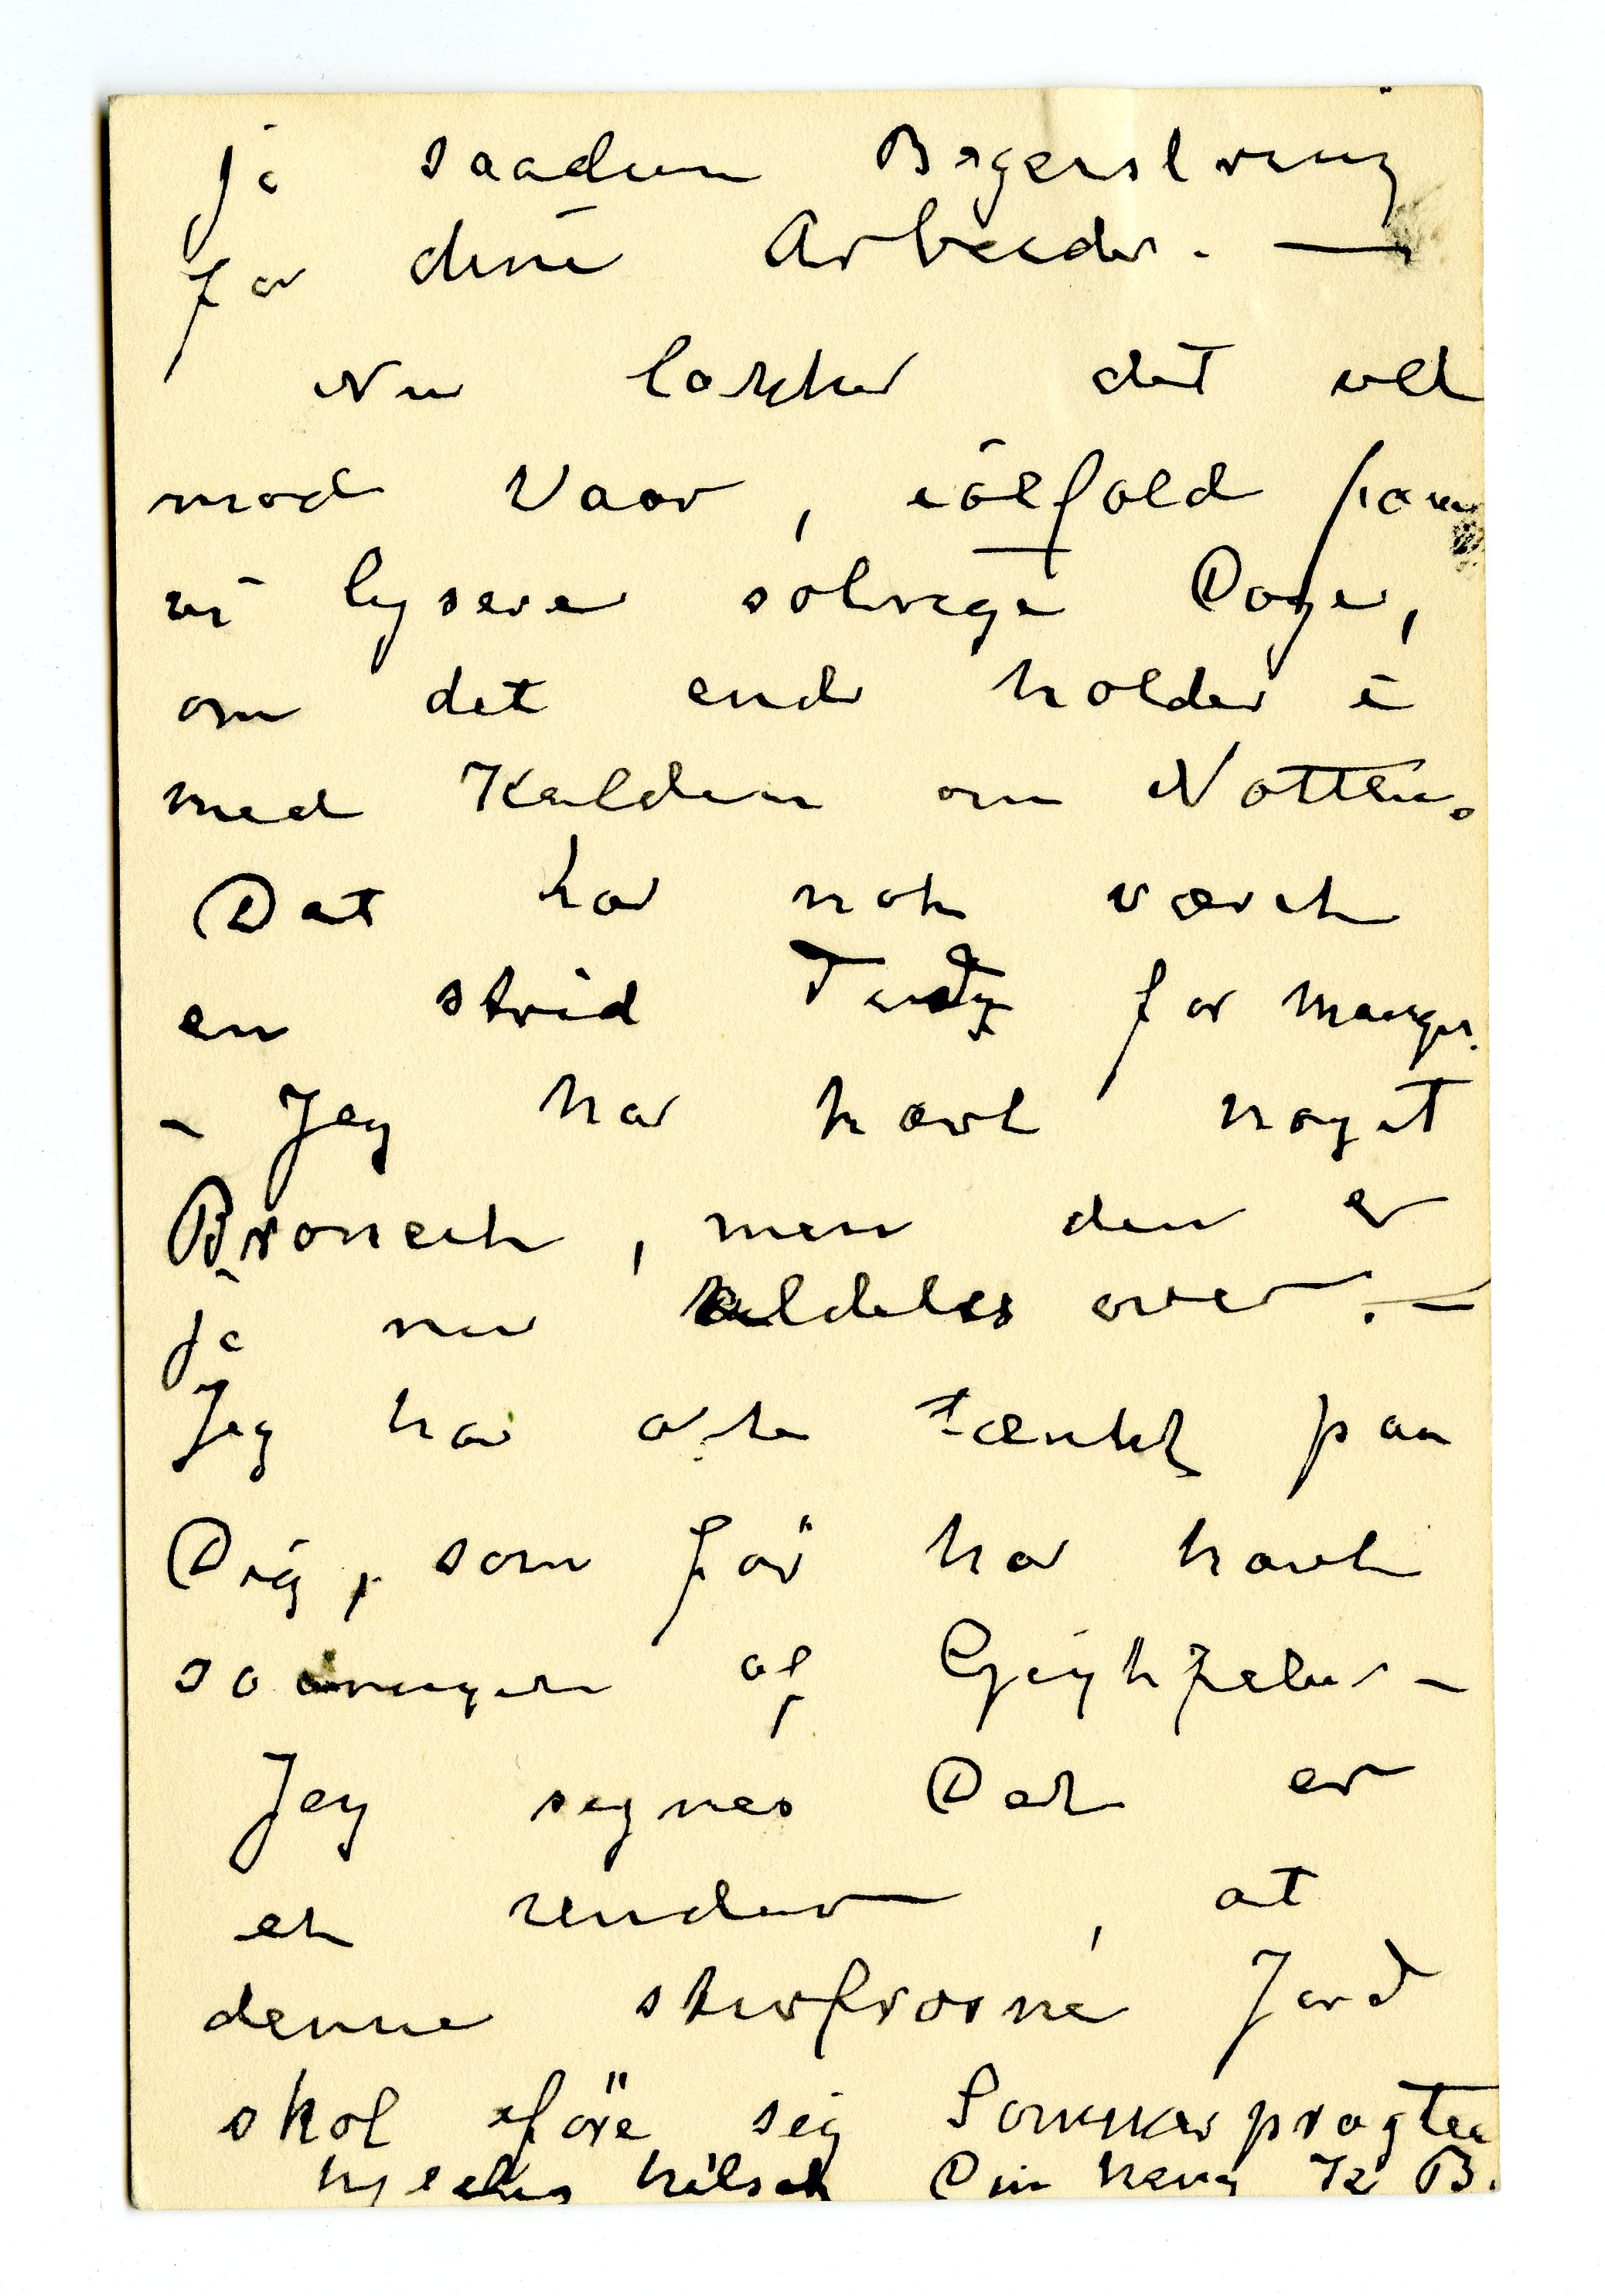 ja saadan Begeistring
for dine Arbeider. —
Nu lakker det vel
mod Vaar, ialfald faar
vi lysere solvege Dage,
om det end holder i
med Kulden om Natten.
Det har nok været
en strid Tørn for mange.
- Jeg har havt noget
Bronchit, men den er
ja nu aldeles over. —
Jeg har ofte tænkt paa
Dig, som för har havt
saa meget af Gigtfeber -
Jeg synes Det er
et under, at
denne stivfrosne Jord
skal iføre sig Sommerpragten
hjertelig hilset Din heng K B.